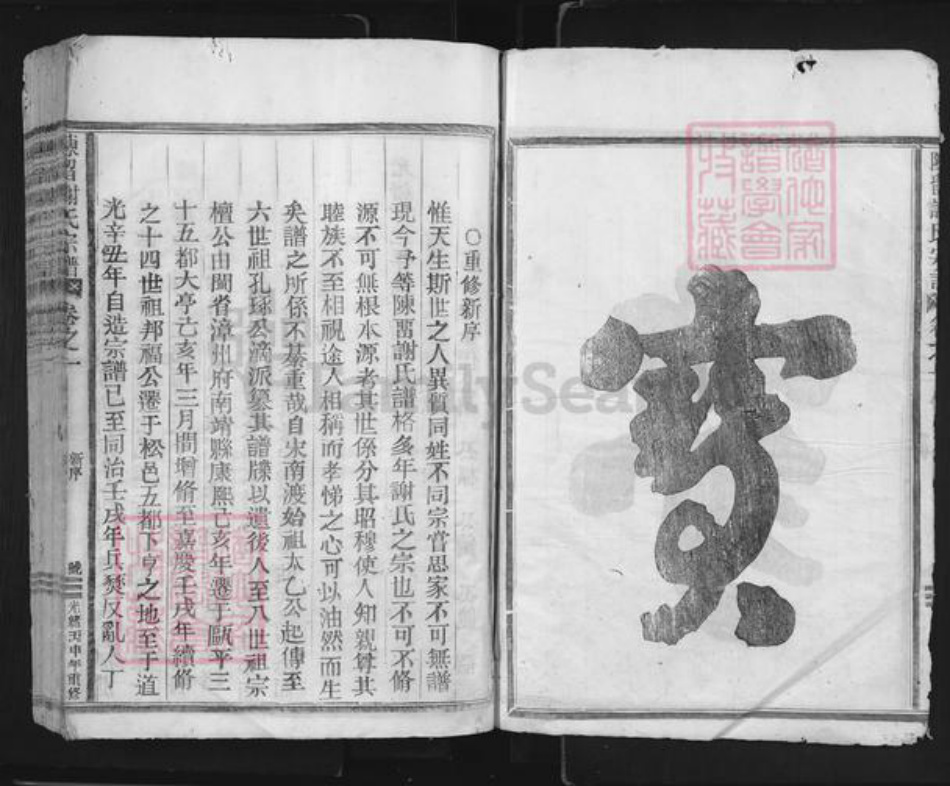 寶
○重修新序
惟天生斯世之人異質同姓不同宗嘗思家不可無譜
現今予等陳畱謝氏譜格多年謝氏之宗也不可不脩
源不可無根本源考其世係分其昭穆使人知親尊其
睦族不至相視途人相稱而孝悌之心可以油然而生
矣譜之所係不綦重哉自宋南渡始祖太乙公起傳至
六世祖孔琢公滴派纂其譜牒以遺後人至八世祖宗
檀公由閩省漳州府南靖縣康熙己亥年遷于甌平三
十五都大亭亡亥年三月間增脩至嘉慶壬戌年續脩
之十四世祖邦福公遷于松邑五都下之地至于道
光辛丑年自造宗譜已至同治壬戌年兵燹反亂人丁
陳留謝氏宗譜 卷之一 新序 光緒丙申年重修
FamilySearch